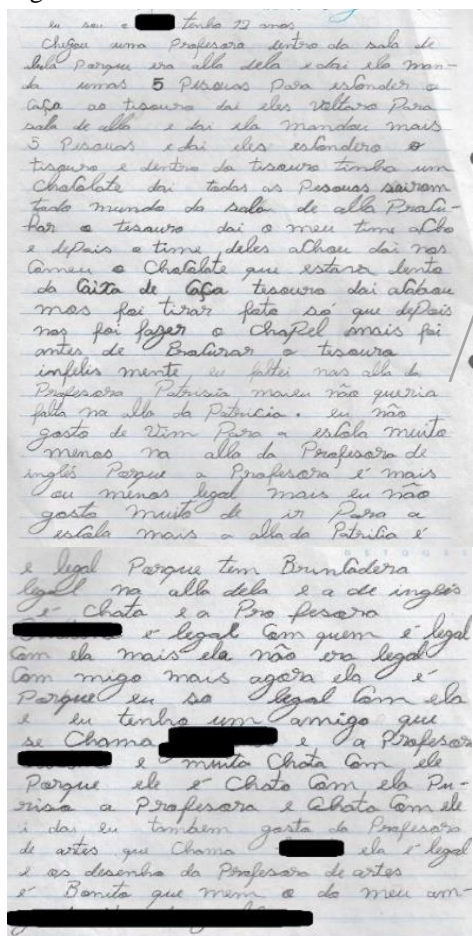 eu sou e tenho 12 anos
Chegou uma Profesora dentro da sala de
alla Parque era alla dela e dai ela man-
da umas 5 Pisouas Para esconder o
caça ao tisouro dai eles voltaro Para
sala de alla e dai ela mandou mais
5 Pisouas e dai eles escondero o
tisouro e dentro da tisouro tinha um
Chocolate dai todas as Pesouas sairom
todo mundo da sala de alla Pracu-
rar o tesouro dai o meu time acho
e depois o time deles achou dai nos
Comeu o Chocolate que estava dento
da Caixa de Caça tesouro dai acabou
mos foi tirar foto só que depois
nos foi fazer o chapel mais foi
antes de Bracurar o tesoura
infelis mente eu faltei nas alla da
Profesora Patrisia maseu não queria
falta na alla da Patricia. eu não
gosto de Vim Para a escola muito
menos na alla da Profesora de
inglês Porque a Profesora é mais
ou menos legal mais eu não
gosto muito de ir Para a
escola mais a alla da Patricia é
e legal Porque tem Brincadera
legal na alla dela e a de inglês
é Chata e a Pro fesora
é legal Com quem é legal
Com ela mais ela não era legal
Com migo mais agora ela é
Porque eu so legal Com ela
e eu tenho um amigo que
se Chama e a Profesor
é muita Chata Com ele
Porque ele é Chato Com ela Pu-
risso a Profesora e Chata Com ele
i dai eu tambem gosto da Profesora
de artes que Chama ela é legal
e os desenho da Profesora de artes
é Bonito que mem o do meu am-